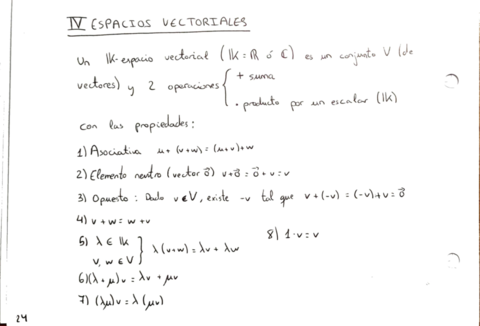 IV ESPACIOS VECTORIALES
Un IK-espacio vectorial (IK = IR ó C) es un conjunto V (de
vectores) y 2 operaciones { + suma
· producto por un escalar (IK)
con las propiedades:
1) Asociativa μ + (v+w) = (μ+v)+w
2) Elemento neutro (vector 0⃗) v+0⃗ = 0⃗+v = v
3) Opuesto: Dado v∈V, existe -v tal que v+(-v) = (-v)+v = 0⃗
4) v+w = w+v
5) λ ∈ IK
v, w ∈ V } λ(v+w) = λv + λw
8) 1·v = v
6) (λ+μ)v = λv + μv
7) (λμ)v = λ(μv)
24